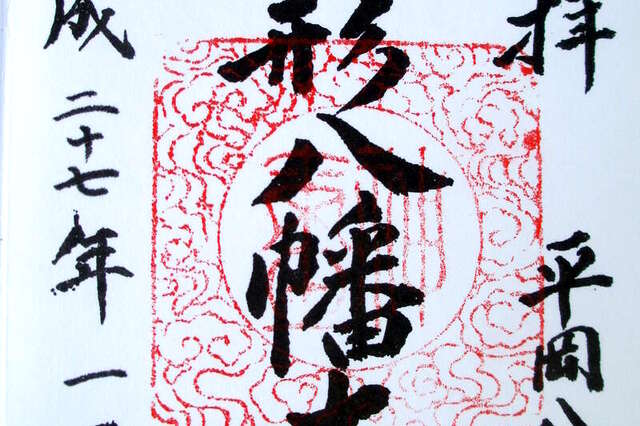 拝 平岡八
形八幡
成二十七年一